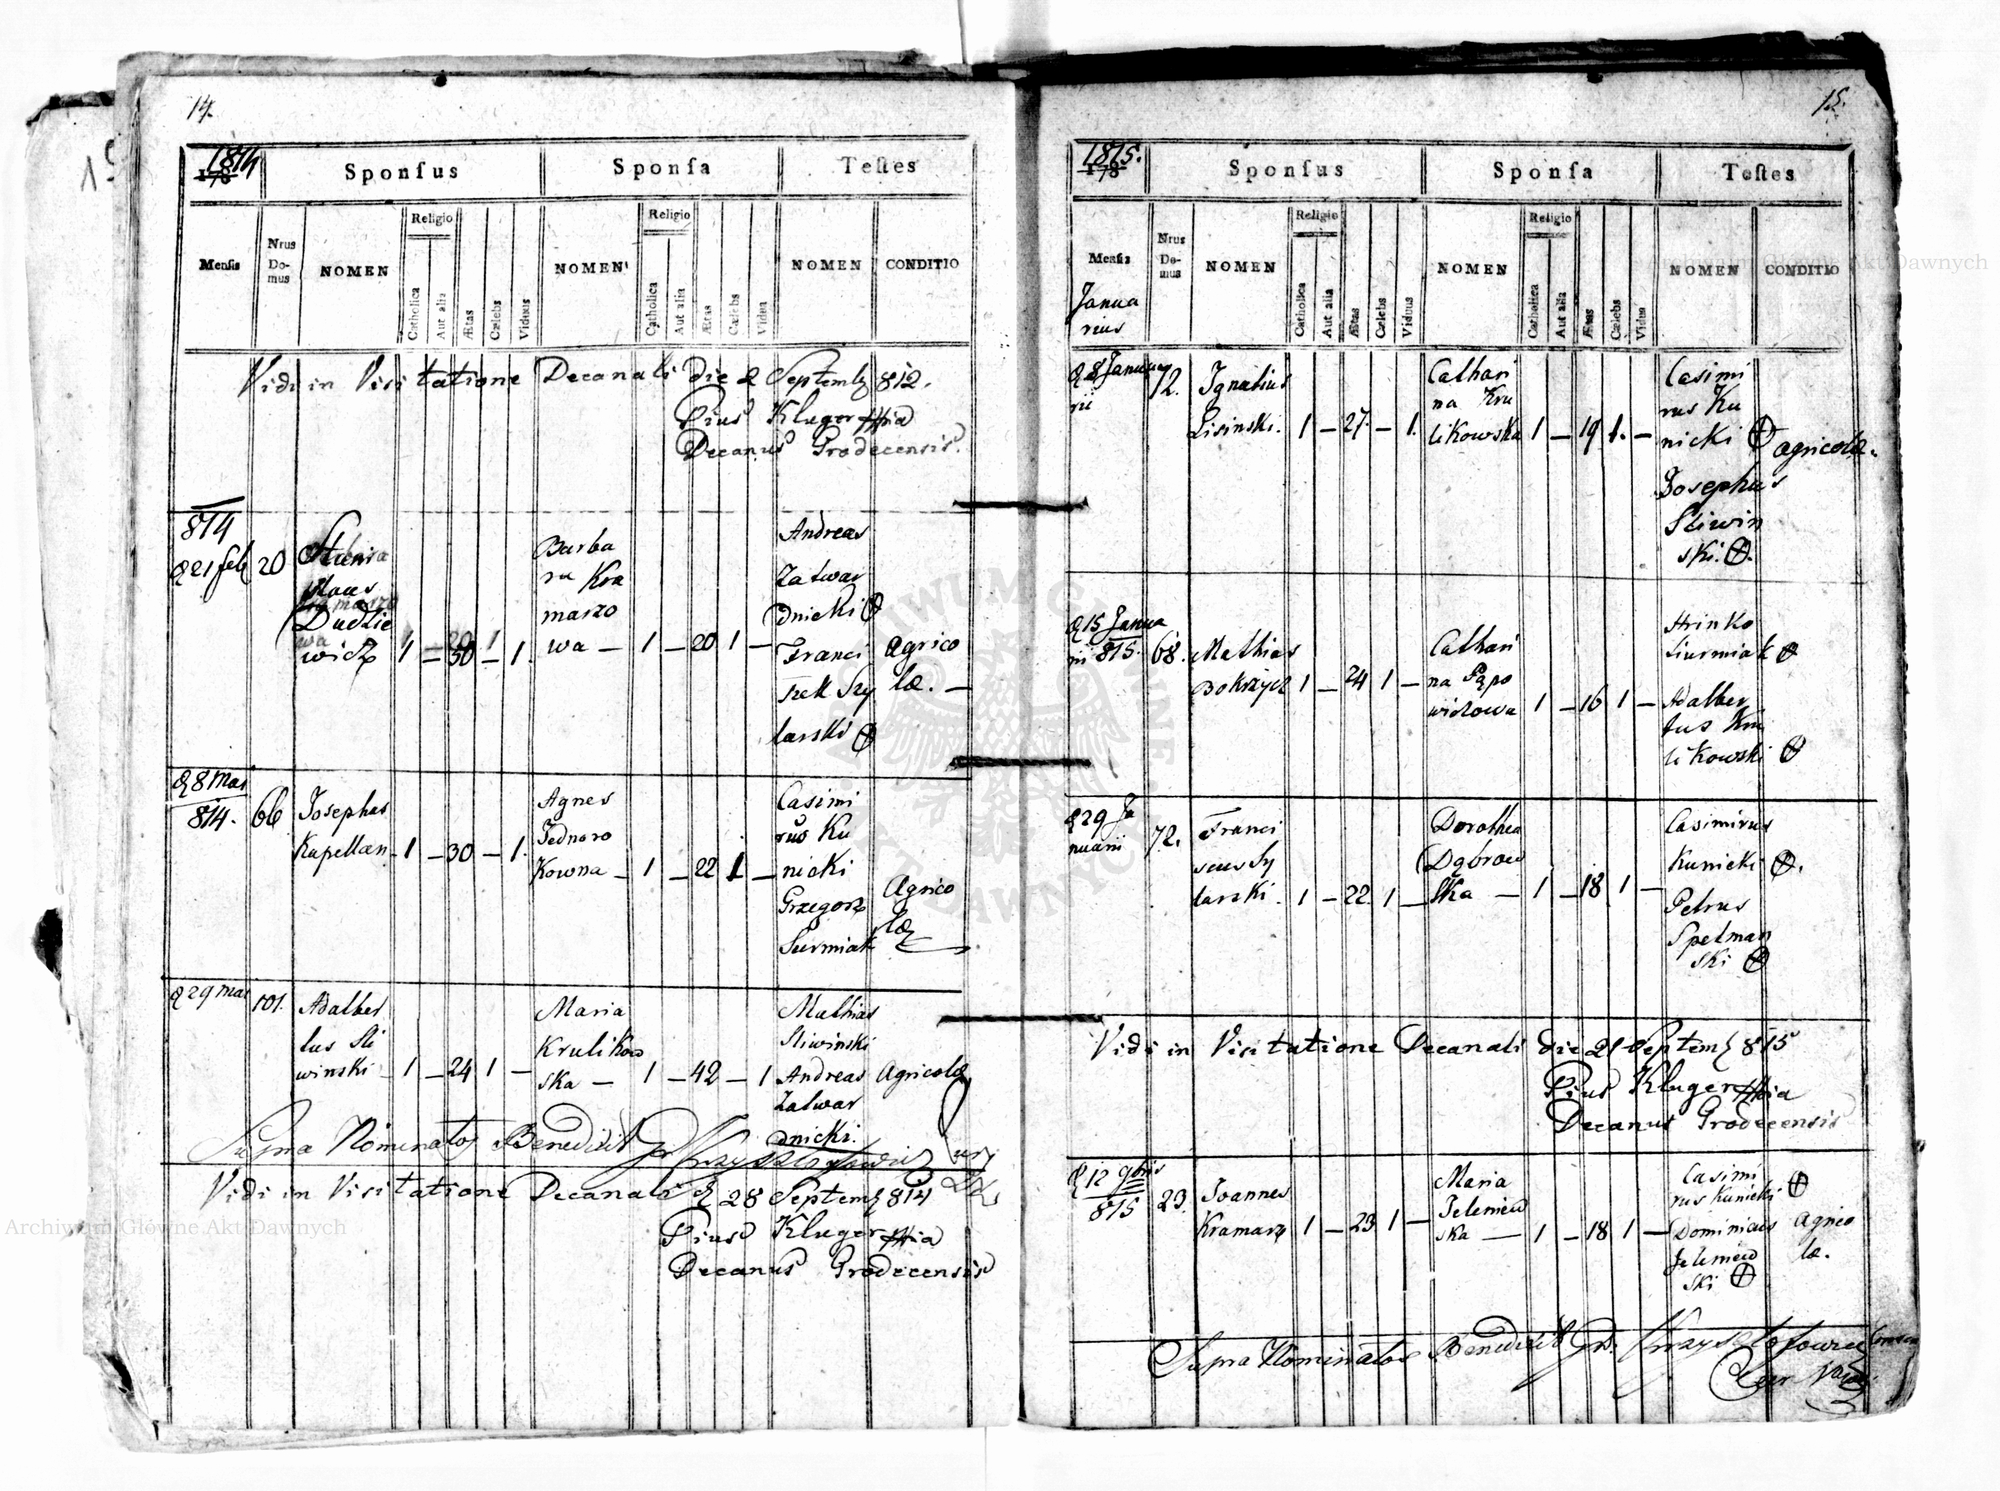 14.
1814
Sponsus
Sponsa
Testes
Mensis
Nrus Do-mus
NOMEN
Religio
Catholica
Aut alia
Ætas
Cælebs
Viduus
NOMEN
Religio
Catholica
Aut alia
Ætas
Cælebs
Vidua
NOMEN
CONDITIO
Vidi in Visitatione Decanali die 2 Septemb 812.
Pius Kluger
Decanus Grodecensis.
814
21 feb 20
Stanis
laus
Dudzie
wicz 1 — 30 — 1.
Barba
ra Kra
marzo
wa — 1 — 20 1 —
Andreas
Zatwar
dnicki
Franci
szek Szy
larski
Agrico
læ. —
28 Mai
814. 66
Josephus
Kapellan — 1 — 30 — 1.
Agnes
Jednoro
Kowna — 1 — 22 1 —
Casimi
rus Ku
nicki
Grzegorz
Surmiak
Agrico
læ
29 Mai 101.
Adalber
tus Sli
winski — 1 — 24 1 —
Maria
Krulikow
ska — 1 — 42 — 1
Mathias
Sliwinski
Andreas
Zatwar
dnicki.
Agricolæ
Supra Nominatos Benedixit
Vidi in Visitatione Decanali 28 Septemb 814
Pius Kluger
Decanus Grodecensis
15.
1815.
Sponsus
Sponsa
Testes
Mensis
Nrus Do-mus
NOMEN
Religio
Catholica
Aut alia
Ætas
Cælebs
Viduus
NOMEN
Religio
Catholica
Aut alia
Ætas
Cælebs
Vidua
NOMEN
CONDITIO
Janua
rius
8 Janua
rii 72.
Ignatius
Lisinski. 1 — 27. — 1.
Cathari
na Kru
likowska 1 — 19 1. —
Casimi
rus Ku
nicki
Josephus
Sliwin
ski.
agricolæ.
15 Janua
rii 815. 68.
Mathias
Bokrzycz 1 — 24 1 —
Cathari
na Pąpo
wichowa 1 — 16 1 —
Hrinko
Siurmiak
Adalber
tus Kru
likowski
29 Ja
nuarii 72.
Franci
scus Sy
larski. 1 — 22 1 —
Dorothea
Dąbrow
ska — 1 — 18 1 —
Casimirus
Kunicki
Petrus
Spetman
ski
Vidi in Visitatione Decanali die 21 Septemb 815
Pius Kluger
Decanus Grodecensis
12 9bris
815 23.
Joannes
Kramarz 1 — 23 1 —
Maria
Jeleniew
ska — 1 — 18 1 —
Casimi
rus Kunicki
Dominicus
Jeleniew
ski
Agrico
læ.
Supra Nominatos Benedixit
Archiwum Główne Akt Dawnych
Archiwum Główne Akt Dawnych
ARCHIWUM GŁÓWNE AKT DAWNYCH